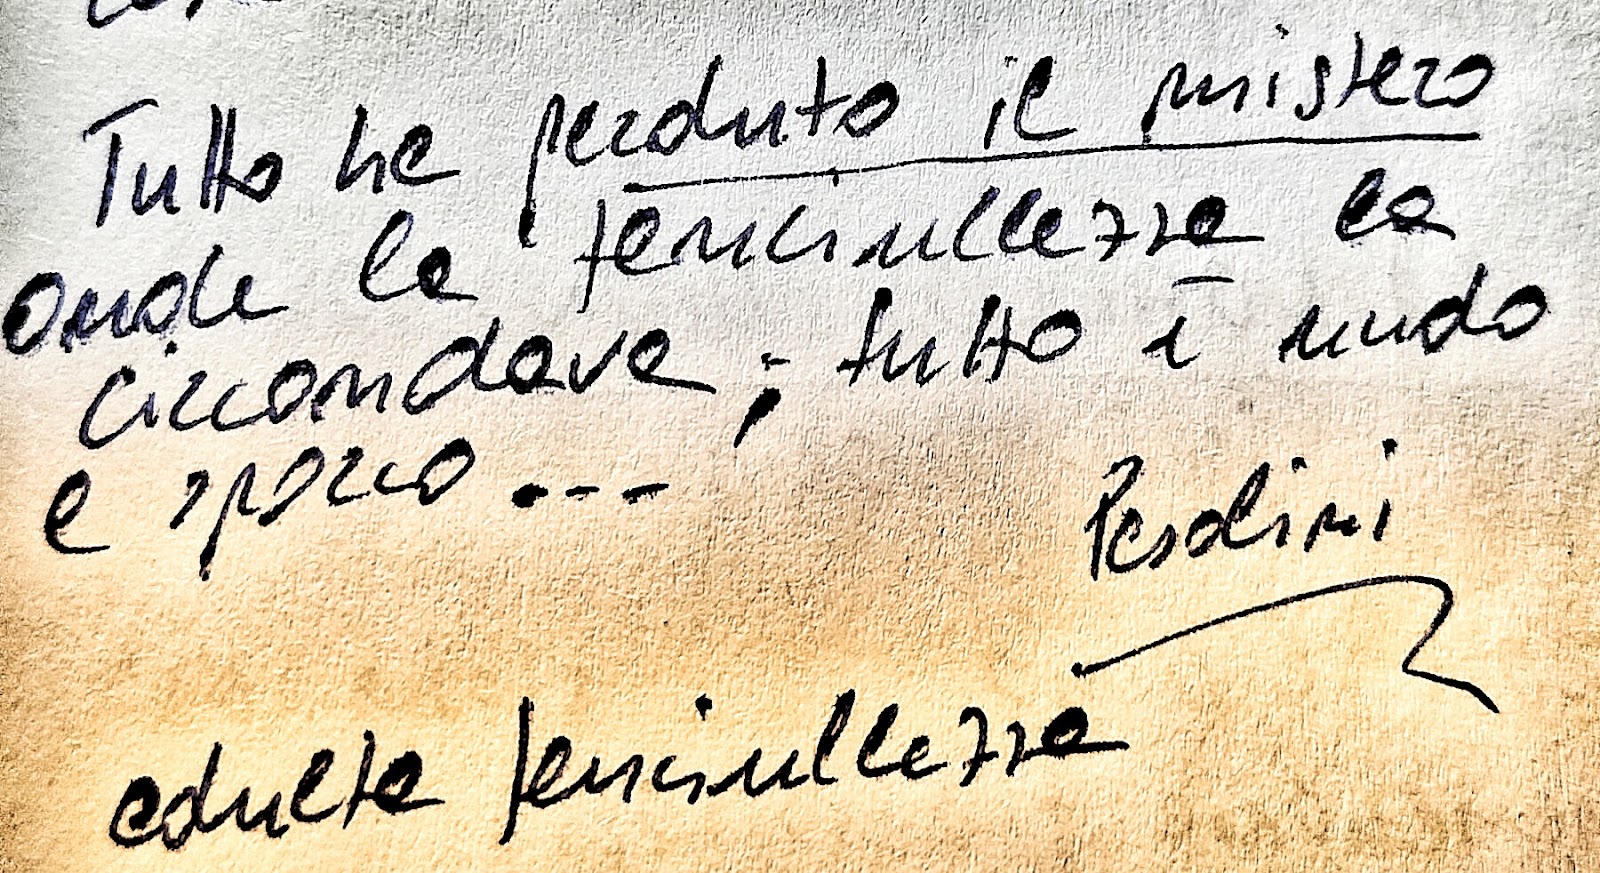 Tutto ha perduto il mistero
onde la fanciullezza la
circondava; tutto è nudo
e sporco...
Pasolini
adulta fanciullezza